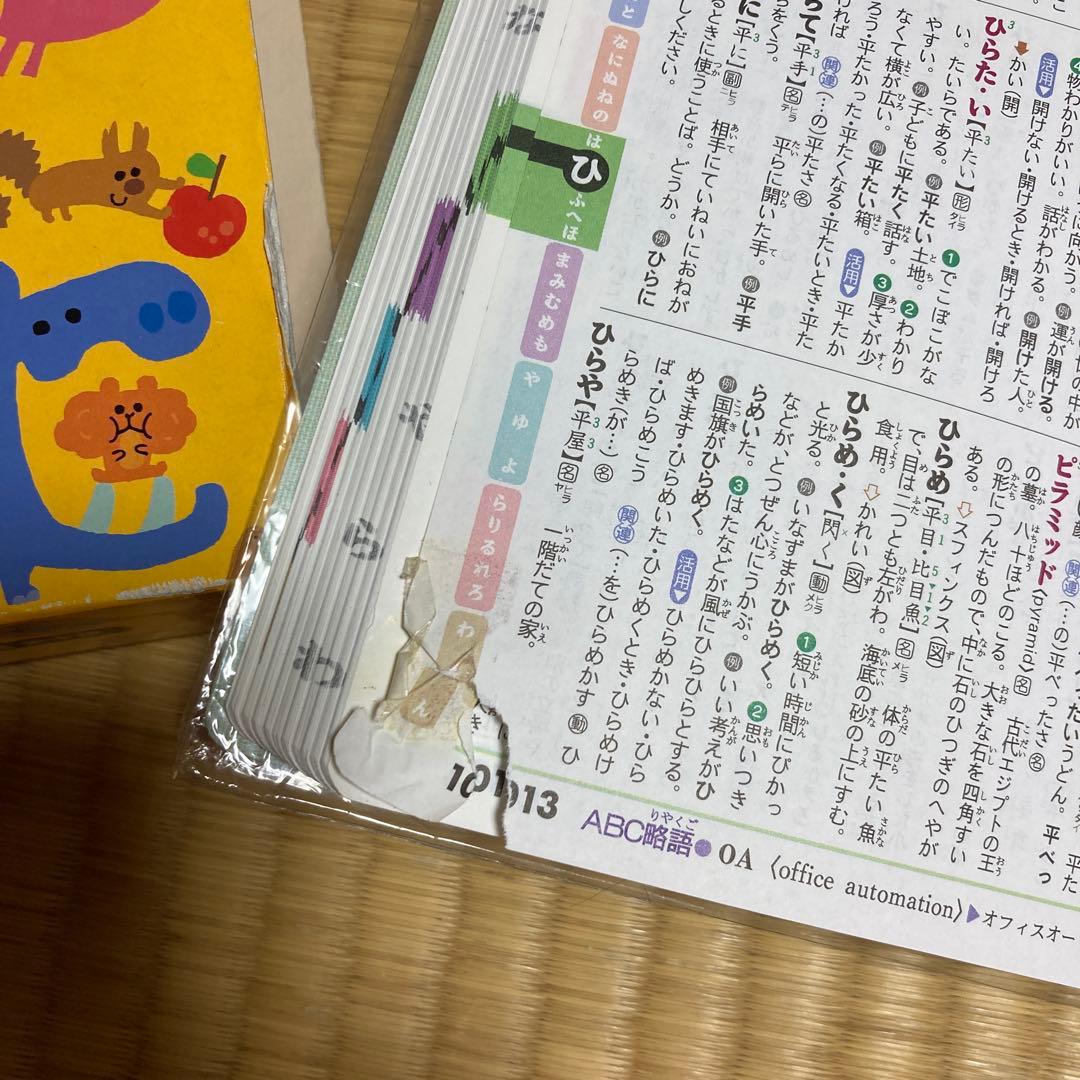 ④物わかりがいい。話がわかる。
活用▼ 開けない・開けるとき・開ければ・開けろ
⬇かい(開)
ひらた・い【平たい】形 ①でこぼこがな
い。たいらである。例平たい土地。②わかり
やすい。例子どもに平たく話す。③厚さが少
なくて横が広い。例平たい箱。活用▼平たか
ろう・平たかった・平たくなる・平たいとき・平た
ければ 関連(…の)平たさ名
【平手】名 平らに開いた手。例平手
をくう。
【平に】副 相手にていねいにおねが
いするときに使うことば。どうか。例ひらに
ピラミッド〈pyramid〉名 古代エジプトの王
の墓。八十ほどのこる。大きな石を四角すい
の形につんだもので、中に石のひつぎのへやが
ある。⇩スフィンクス(図)
ひらめ【平目・比目魚】名 体の平たい魚
で、目は二つとも左がわ。海底の砂の上にすむ。
食用。⇩かれい(図)
ひらめ・く【閃く】動 ①短い時間にぴかっ
と光る。例いなずまがひらめく。②思いつき
などが、とつぜん心にうかぶ。例いい考えがひ
らめいた。③はたなどが風にひらひらとする。
例国旗がひらめく。活用▼ひらめかない・ひら
めきます・ひらめいた・ひらめくとき・ひらめけ
ば・ひらめこう 関連(…を)ひらめかす動 ひ
らめき(が…)名
ひらや【平屋】名 一階だての家。
なにぬねの
は
ひ
ふへほ
まみむめも
や ゆ よ
らりるれろ
わ
ん
な
ら
わ
1013
ABC略語● OA 〈office automation〉▶オフィスオー